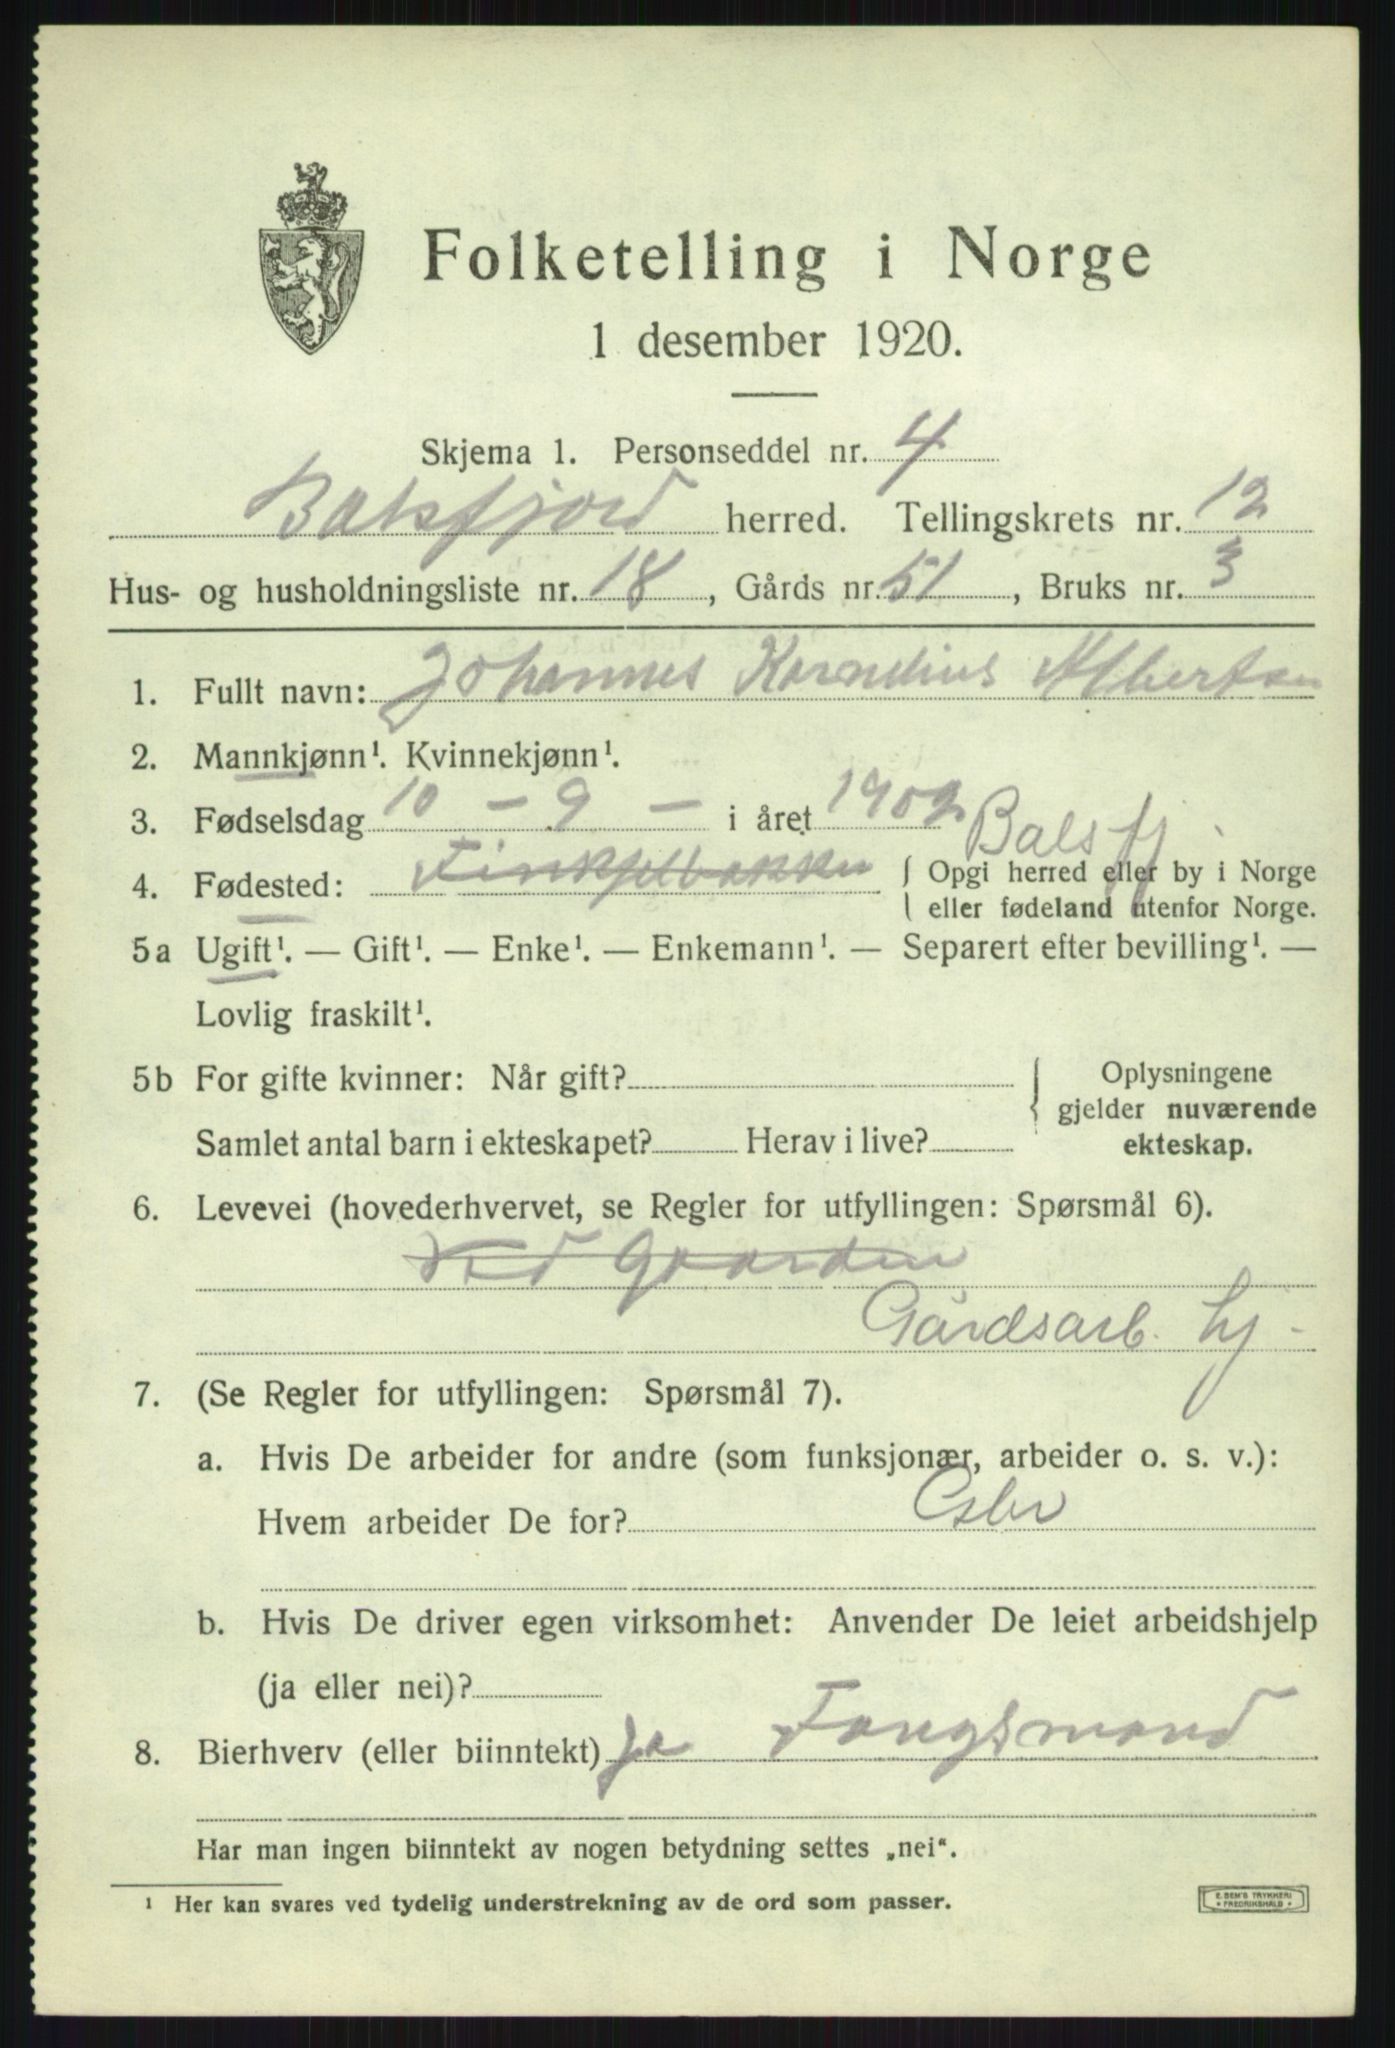 Folketelling i Norge
1 desember 1920.
Skjema 1. Personseddel nr. 4
Balsfjord herred. Tellingskrets nr. 12
Hus- og husholdningsliste nr. 18, Gårds nr. 51, Bruks nr. 3
1. Fullt navn: Johannes Kornelius Albertsen
2. Mannkjønn¹. Kvinnekjønn¹.
3. Fødselsdag 10 - 9 - i året 1902 Balsfj.
4. Fødested: { Opgi herred eller by i Norge
eller fødeland utenfor Norge.
5a Ugift¹. — Gift¹. — Enke¹. — Enkemann¹. — Separert efter bevilling¹. —
Lovlig fraskilt¹.
5b For gifte kvinner: Når gift? { Oplysningene
gjelder nuværende
Samlet antal barn i ekteskapet? Herav i live? ekteskap.
6. Levevei (hovederhvervet, se Regler for utfyllingen: Spørsmål 6).
Ved Gaarden
Gårdsarb. hj-
7. (Se Regler for utfyllingen: Spørsmål 7).
a. Hvis De arbeider for andre (som funksjonær, arbeider o. s. v.):
Hvem arbeider De for?
b. Hvis De driver egen virksomhet: Anvender De leiet arbeidshjelp
(ja eller nei)?
8. Bierhverv (eller biinntekt) Ja Fangsmand
Har man ingen biinntekt av nogen betydning settes „nei“.
¹ Her kan svares ved tydelig understrekning av de ord som passer.
E. SEM'S TRYKKERI
* FREDRIKSHALD *